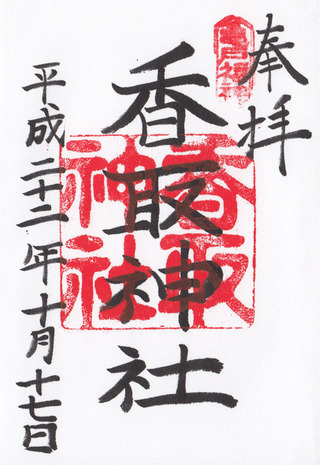 奉拝
亀戸福神
香取神社
香取神社
平成二十二年十月十七日